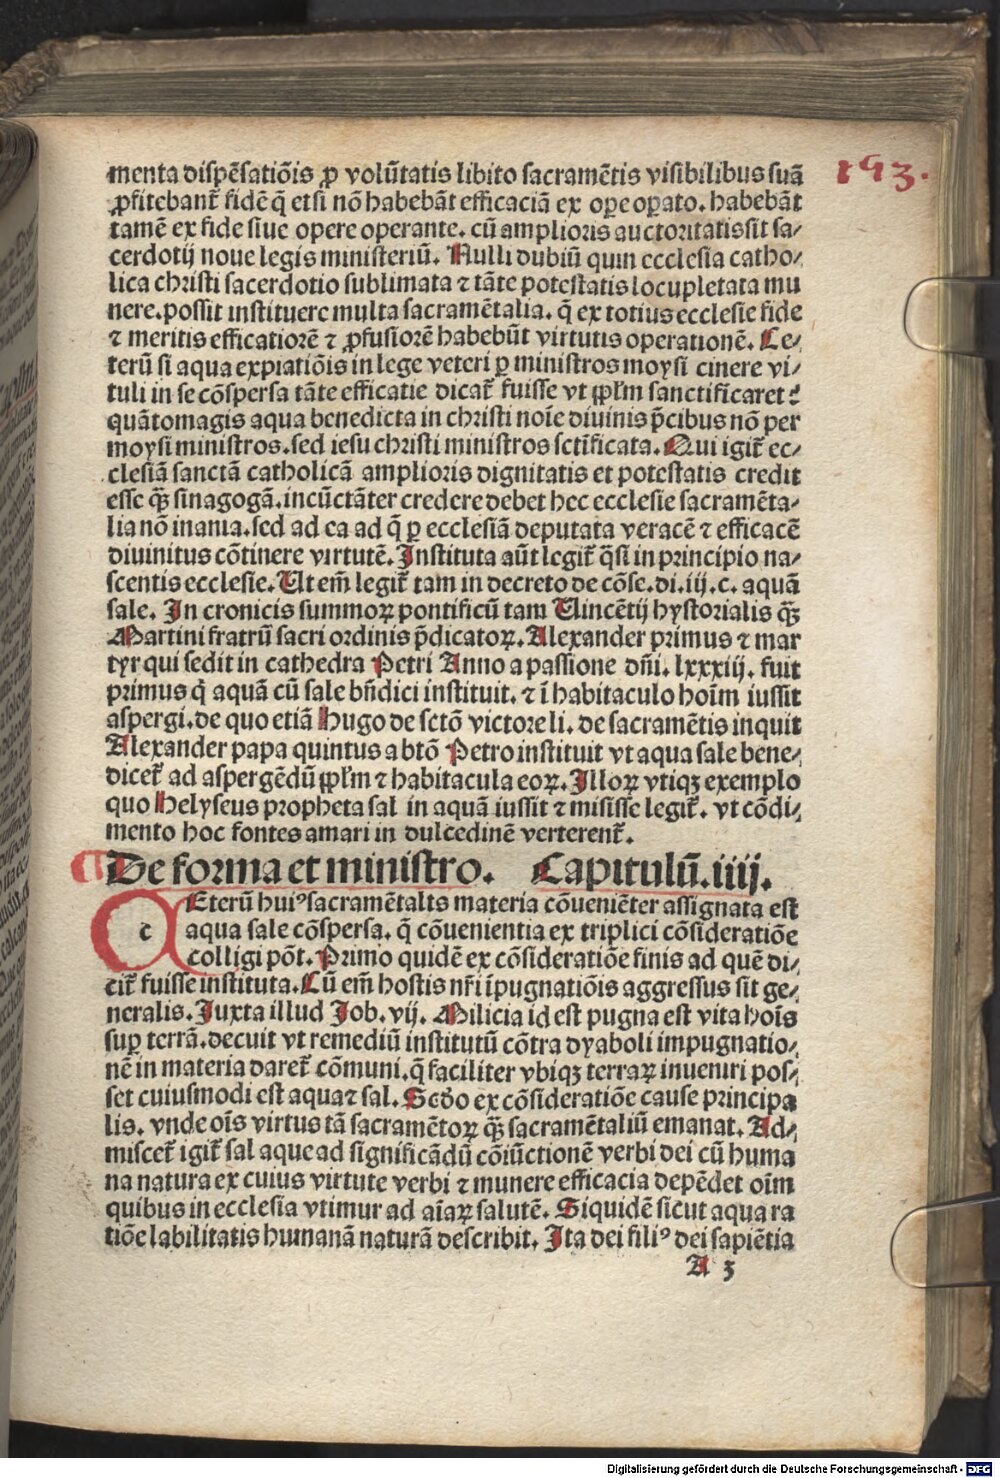 193.
menta dispēsatiōis ꝓ volūtatis libito sacramētis visibilibus suā
ꝓfitebant᷑ fidē q̄ etsi nō habebāt efficaciā ex oꝑe oꝑato. habebāt
tamē ex fide siue opere operante. cū amplioris auctoritatis sit sa⸗
cerdotij noue legis ministeriū. Nulli dubiū quin ecclesia catho⸗
lica christi sacerdotio sublimata ⁊ tāte potestatis locupletata mu
nere. possit instituere multa sacramētalia. q̄ ex totius ecclesie fide
⁊ meritis efficatiorē ⁊ ꝓfusiorē habebūt virtutis operationē. Ce⸗
terū si aqua expiatiōis in lege veteri ꝑ ministros moysi cinere vi⸗
tuli in se cōspersa tāte efficatie dicat᷑ fuisse vt ꝓp̄lm sanctificaret:
quātomagis aqua benedicta in christi noīe diuinis p̄cibus nō per
moysi ministros. sed iesu christi ministros sctīficata. Qui igit᷑ ec⸗
clesiā sanctā catholicā amplioris dignitatis et potestatis credit
esse qꝫ̄ sinagogā. incūctāter credere debet hec ecclesie sacramēta⸗
lia nō inania. sed ad ea ad q̄ ꝑ ecclesiā deputata veracē ⁊ efficacē
diuinitus cōtinere virtutē. Instituta aūt legit᷑ q̄si in principio na⸗
scentis ecclesie. Ut em̄ legit᷑ tam in decreto de cōse. di. iij. c. aquā
sale. In cronicis summoꝝ pontificū tam Vincētij hystorialis qꝫ̄
Martini fratrū sacri ordinis p̄dicatoꝝ. Alexander primus ⁊ mar
tyr qui sedit in cathedra Petri Anno a passione dn̄i. lxxxiij. fuit
primus q̇ aquā cū sale bn̄dici instituit. ⁊ ī habitaculo hoīm iussit
aspergi. de quo etiā Hugo de sctō victore li. de sacramētis inquit
Alexander papa quintus a btō Petro instituit vt aqua sale bene⸗
dicet᷑ ad aspergēdū ꝓp̄lm ⁊ habitacula eoꝝ. Illoꝝ vtiqꝫ exemplo
quo Helyseus propheta sal in aquā iussit ⁊ misisse legit᷑. vt cōdi⸗
mento hoc fontes amari in dulcedinē verterent᷑.
De forma et ministro. Capitulū. iiij.
c Eterū huiꝰ sacramētalis materia cōueniēter assignata est
aqua sale cōspersa. q̄ cōuenientia ex triplici cōsideratiōe
colligi pōt. Primo quidē ex cōsideratiōe finis ad quē di⸗
cit᷑ fuisse instituta. Cū em̄ hostis nr̄i īpugnatiōis aggressus sit ge⸗
neralis. Iuxta illud Job. vij. Milicia id est pugna est vita hoīs
suꝑ terrā. decuit vt remediū institutū cōtra dyaboli impugnatio⸗
nē in materia daret᷑ cōmuni. q̄ faciliter vbiqꝫ terraꝝ inueniri pos⸗
set cuiusmodi est aqua ⁊ sal. Scdo ex cōsideratiōe cause principa
lis. vnde oīs virtus tā sacramētoꝝ qꝫ̄ sacramētaliū emanat. Ad⸗
miscet᷑ igit᷑ sal aque ad significādū cōiūctionē verbi dei cū huma
na natura ex cuius virtute verbi ⁊ munere efficacia depēdet oīm
quibus in ecclesia vtimur ad aīaꝝ salutē. Siquidē sicut aqua ra
tiōe labilitatis humanā naturā describit. Ita dei filiꝰ dei sapiētia
A 3
Digitalisierung gefördert durch die Deutsche Forschungsgemeinschaft - DFG